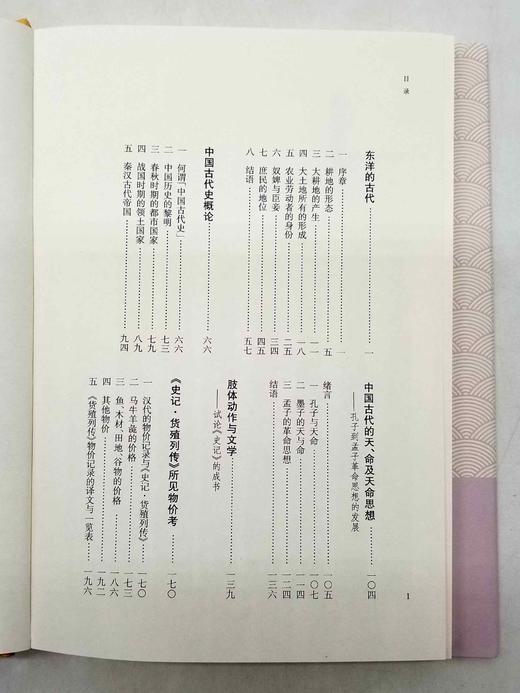 目录
东洋的古代……一
一 序章……一
二 耕地的形态……五
三 大耕地的产生……一一
四 大土地所有的形成……一八
五 农业劳动者的身份……二五
六 奴婢与臣妾……三四
七 庶民的地位……四五
八 结语……五七
中国古代史概论……六六
一 何谓「中国古代史」……六六
二 中国历史的黎明……七三
三 春秋时期的都市国家……七九
四 战国时期的领土国家……八九
五 秦汉古代帝国……九四
中国古代的天、命及天命思想
——孔子到孟子革命思想的发展……一〇四
绪言……一〇五
一 孔子与天命……一〇七
二 墨子的天与命……一一四
三 孟子的革命思想……一二四
结语……一三六
肢体动作与文学
——试论《史记》的成书……一三九
《史记·货殖列传》所见物价考……一七〇
一 汉代的物价记录与《史记·货殖列传》……一七〇
二 马牛羊彘的价格……一七三
三 鱼、木材、田地、谷物的价格……一八六
四 其他物价……一九二
五 《货殖列传》物价记录的译文与一览表……一九六
1